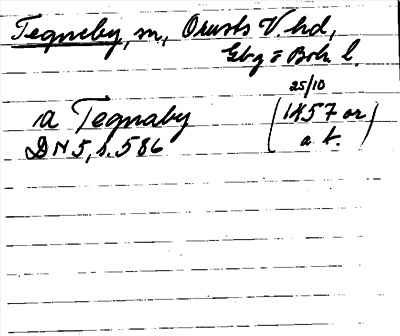 Tegneby, sn, Orusts V. hd,
Gbg o Boh l.
25/10
a Tegnaby (1457 or
DN 5, s. 586 a t.)